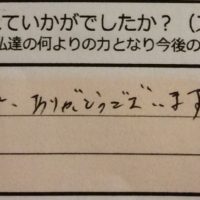 ていかがでしたか？(
私達の何よりの力となり今後の
ありがとうございます